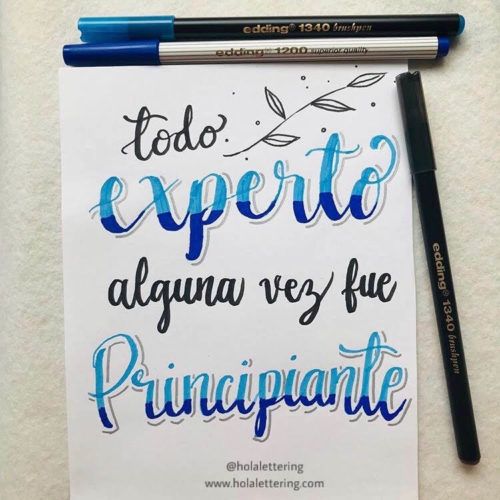 edding® 1340 brushpen
edding® 1200 superior quality
todo
experto
alguna vez fue
Principiante
edding® 1340 brushpen
@holalettering
www.holalettering.com